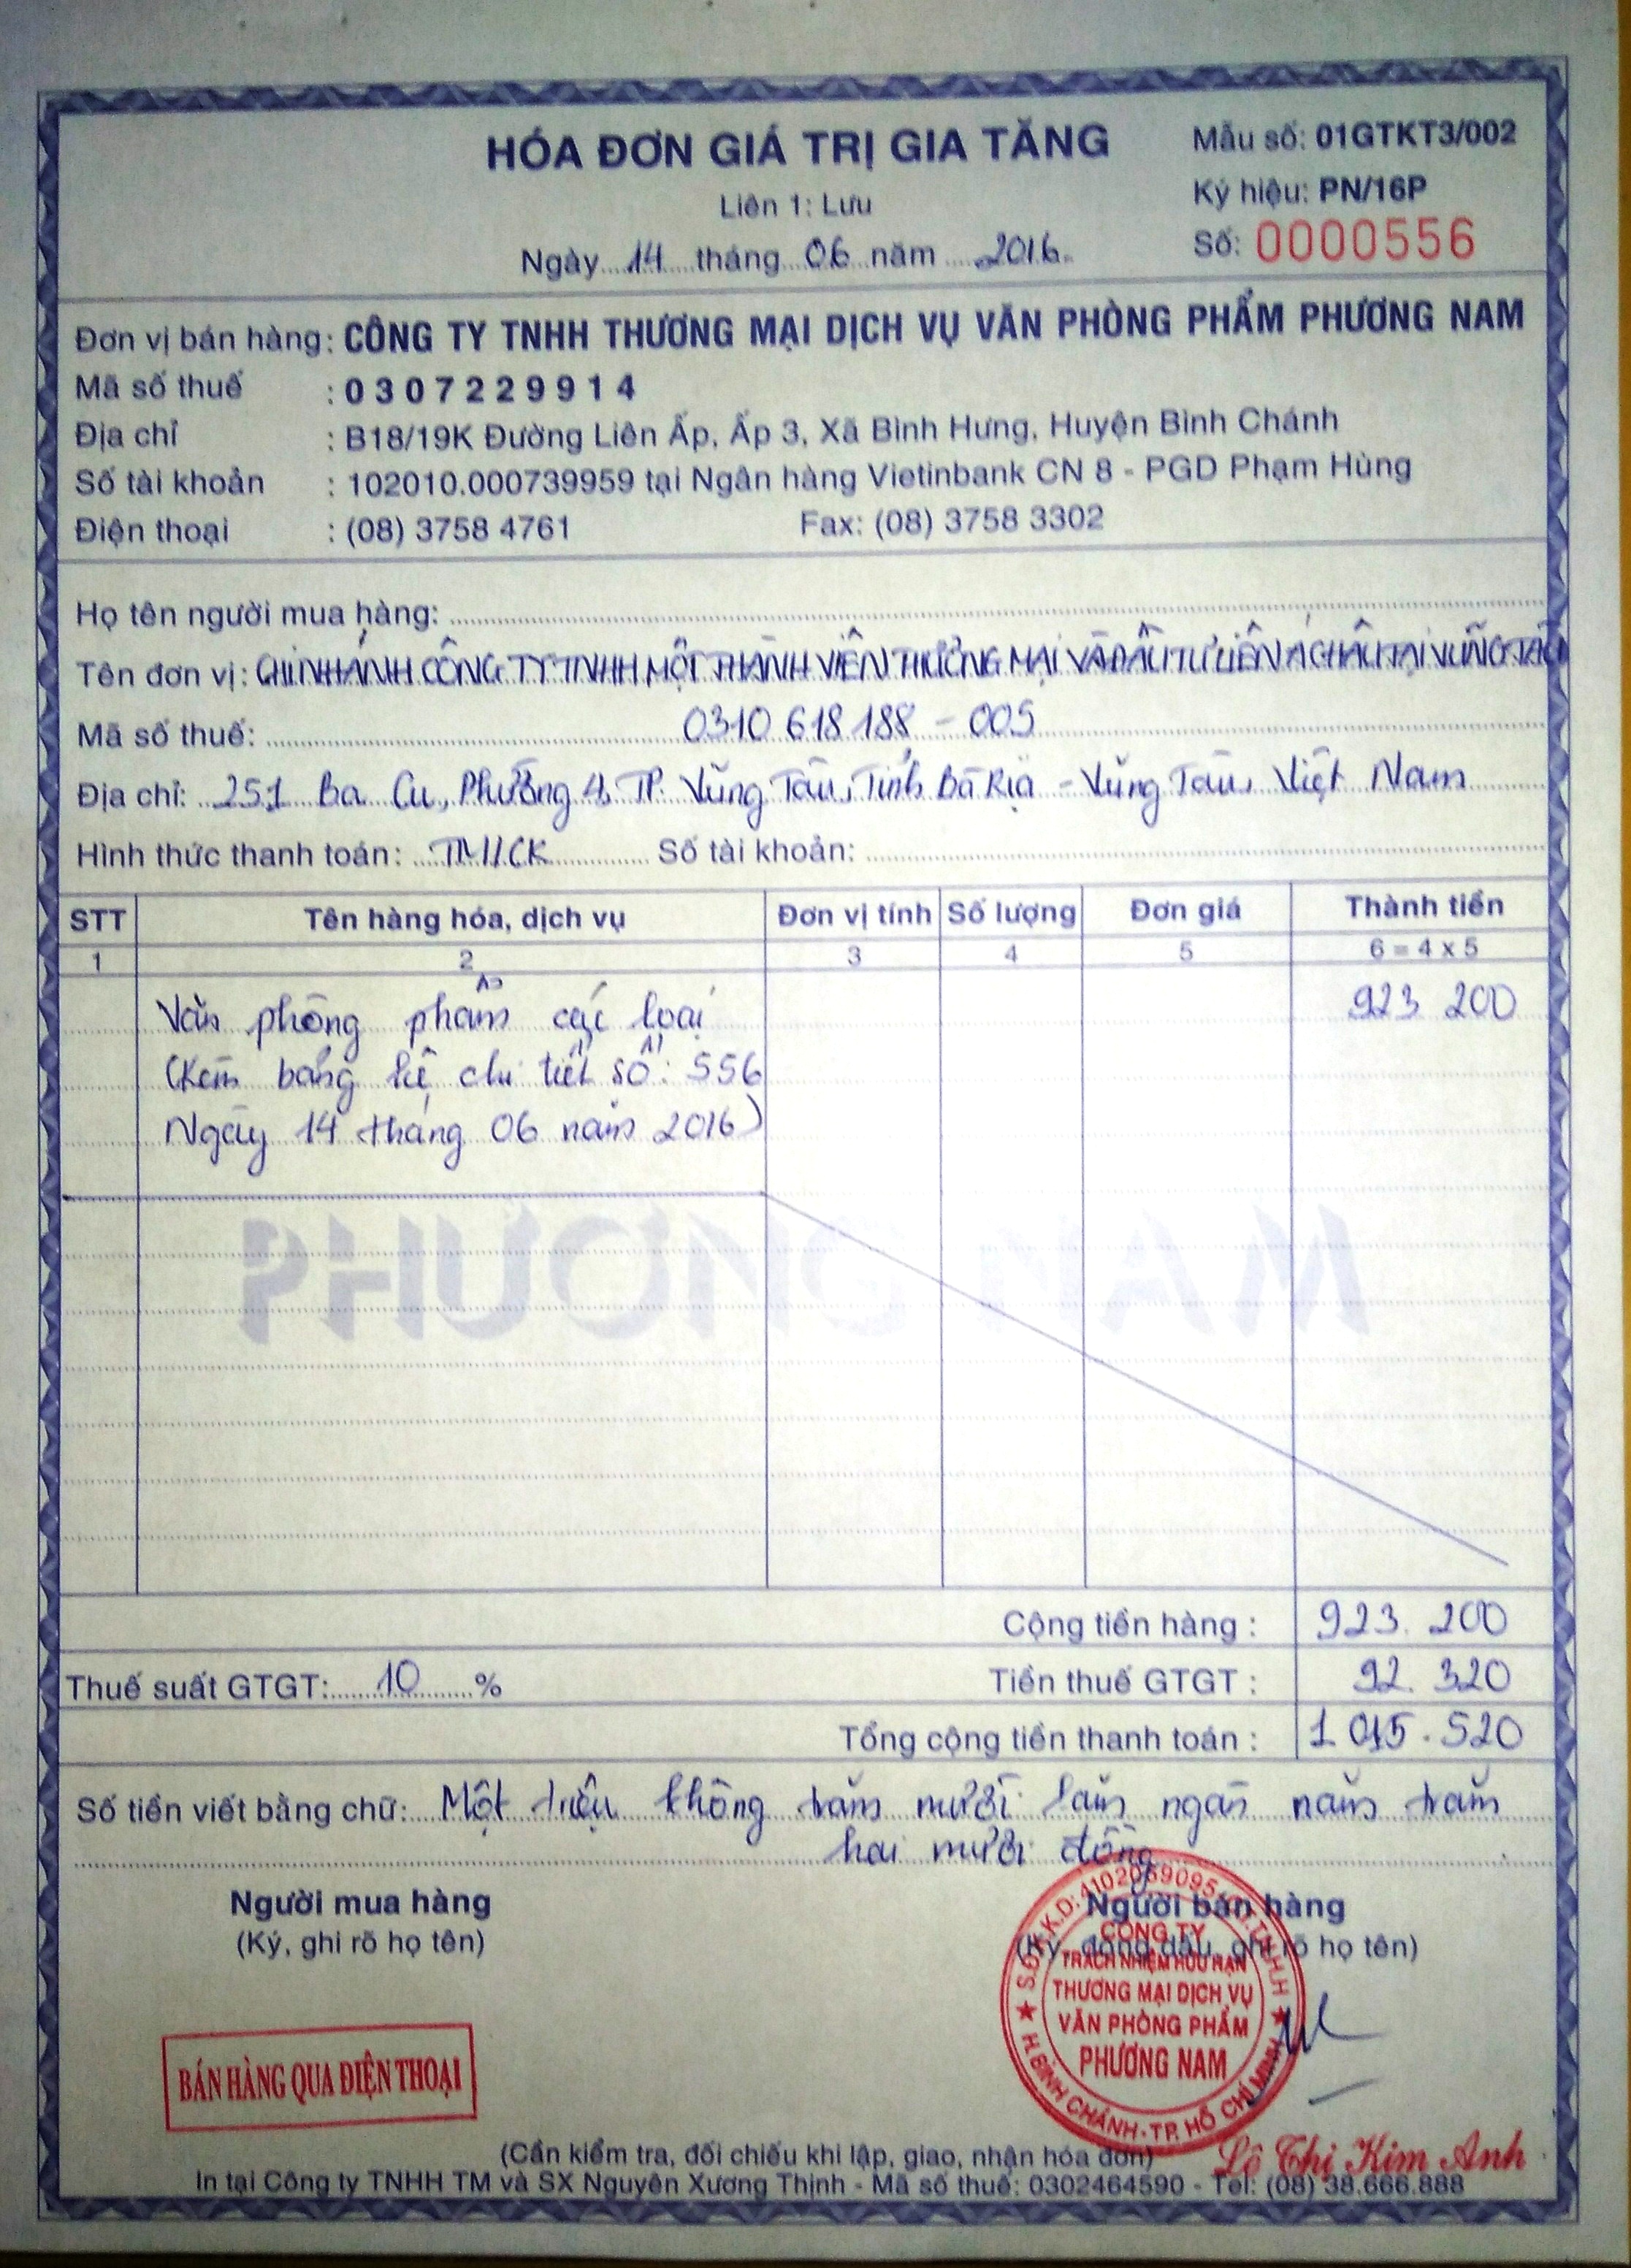 HÓA ĐƠN GIÁ TRỊ GIA TĂNG
Mẫu số: 01GTKT3/002
Liên 1: Lưu
Ký hiệu: PN/16P
Ngày 14 tháng 06 năm 2016
Số: 0000556
Đơn vị bán hàng: CÔNG TY TNHH THƯƠNG MẠI DỊCH VỤ VĂN PHÒNG PHẨM PHƯƠNG NAM
Mã số thuế : 0307229914
Địa chỉ : B18/19K Đường Liên Ấp, Ấp 3, Xã Bình Hưng, Huyện Bình Chánh
Số tài khoản : 102010.000739959 tại Ngân hàng Vietinbank CN 8 - PGD Phạm Hùng
Điện thoại : (08) 3758 4761 Fax: (08) 3758 3302
Họ tên người mua hàng:
Tên đơn vị: CHI NHÁNH CÔNG TY TNHH MỘT THÀNH VIÊN THƯƠNG MẠI VÀ ĐẦU TƯ LIÊN Á CHÂU TẠI VŨNG TÀU
Mã số thuế: 0310 618 188 - 005
Địa chỉ: 251 Ba Cu, Phường 4, TP. Vũng Tàu, Tỉnh Bà Rịa - Vũng Tàu, Việt Nam
Hình thức thanh toán: TM/CK Số tài khoản:
STT Tên hàng hóa, dịch vụ Đơn vị tính Số lượng Đơn giá Thành tiền
1 2 3 4 5 6 = 4 x 5
Văn phòng phẩm các loại 923 200
(Kèm bảng kê chi tiết số: 556
Ngày 14 tháng 06 năm 2016)
PHƯƠNG NAM
Cộng tiền hàng : 923. 200
Thuế suất GTGT: 10 % Tiền thuế GTGT : 92. 320
Tổng cộng tiền thanh toán : 1 015.520
Số tiền viết bằng chữ: Một triệu không trăm mười lăm ngàn năm trăm
hai mười đồng
Người mua hàng Người bán hàng
(Ký, ghi rõ họ tên) (Ký, đóng dấu, ghi rõ họ tên)
CÔNG TY
TRÁCH NHIỆM HỮU HẠN
THƯƠNG MẠI DỊCH VỤ
VĂN PHÒNG PHẨM
PHƯƠNG NAM
H.BÌNH CHÁNH-TP. HỒ CHÍ MINH
BÁN HÀNG QUA ĐIỆN THOẠI
Lê Thị Kim Anh
(Cần kiểm tra, đối chiếu khi lập, giao, nhận hóa đơn)
In tại Công ty TNHH TM và SX Nguyên Xương Thịnh - Mã số thuế: 0302464590 - Tel: (08) 38.666.888